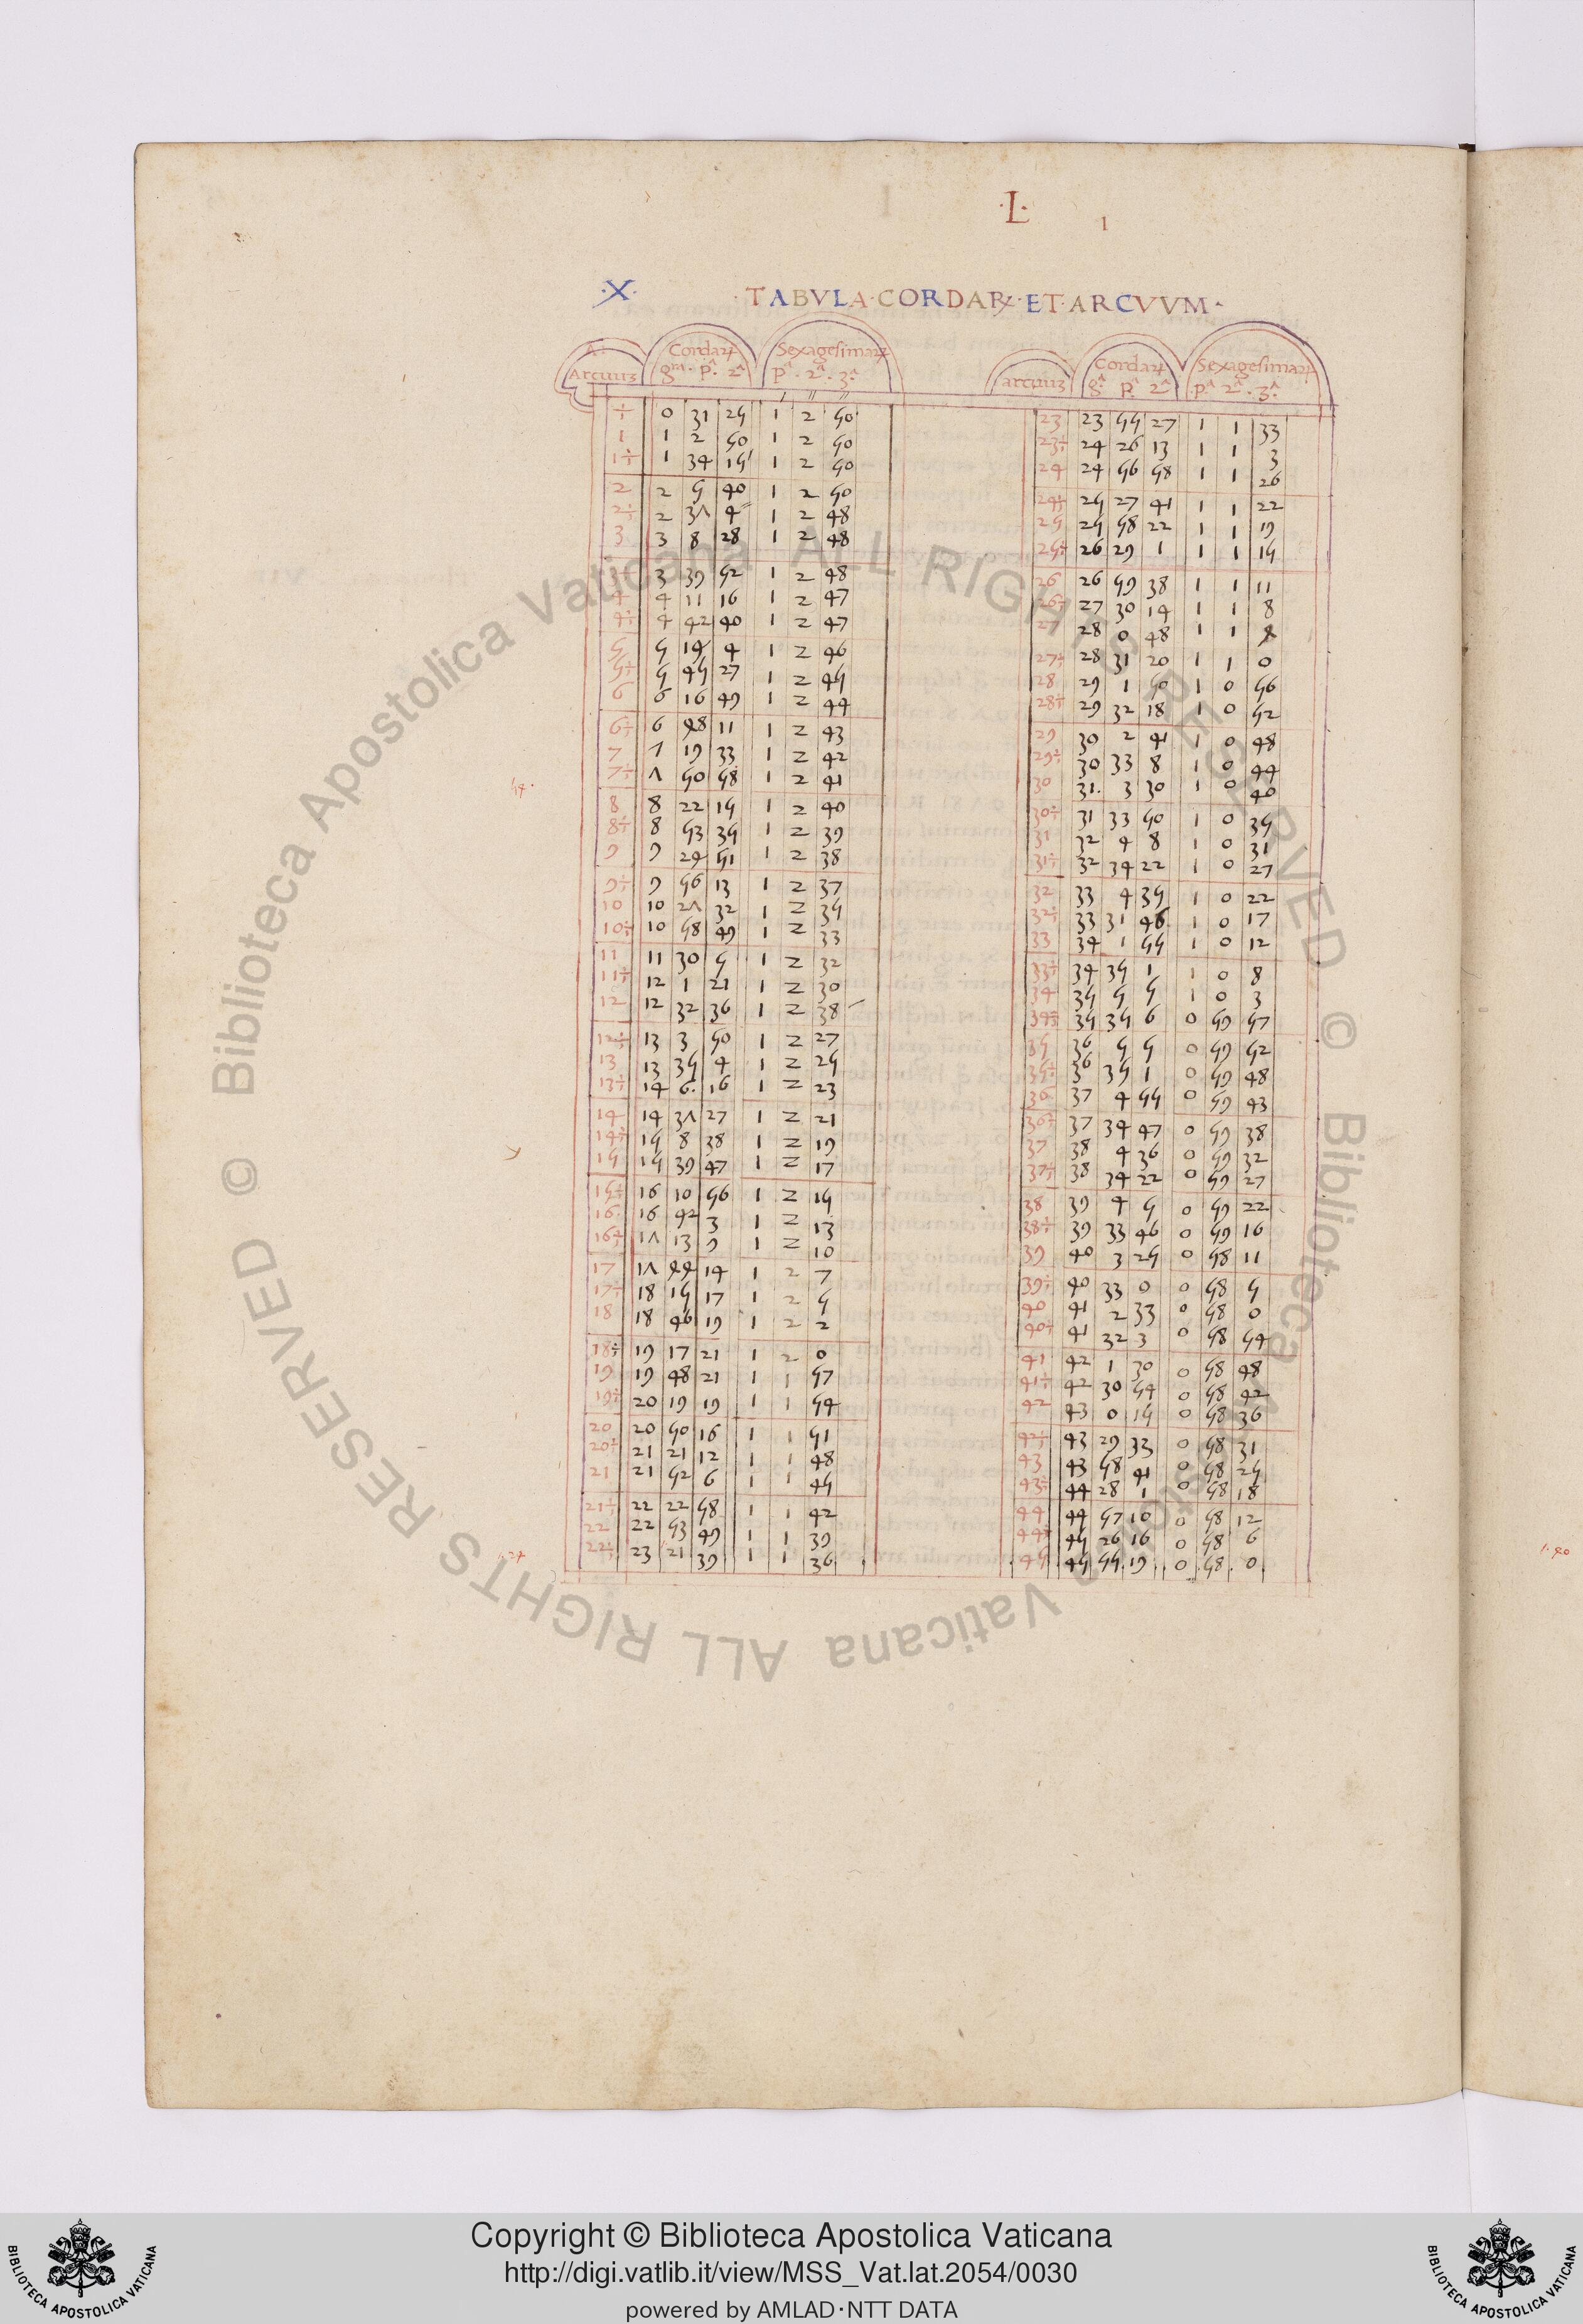 ·L·
1
·X· ·TABVLA·CORDARꝜ·ET·ARCVVM·
A:
Arcuuȝ Cordaꝝ Sexagesimaꝝ
gra· pa· 2a pa· 2a· 3a·
½ 0 31 25 1 2 50
1 1 2 50 1 2 50
1½ 1 34 15 1 2 50
2 2 5 40 1 2 50
2½ 2 37 4 1 2 48
3 3 8 28 1 2 48
3½ 3 39 52 1 2 48
4 4 11 16 1 2 47
4½ 4 42 40 1 2 47
5 5 14 4 1 2 46
5½ 5 45 27 1 2 45
6 6 16 49 1 2 44
6½ 6 48 11 1 2 43
7 7 19 33 1 2 42
7½ 7 50 58 1 2 41
8 8 22 15 1 2 40
8½ 8 53 35 1 2 39
9 9 24 51 1 2 38
9½ 9 56 13 1 2 37
10 10 27 32 1 2 35
10½ 10 58 49 1 2 33
11 11 30 5 1 2 32
11½ 12 1 21 1 2 30
12 12 32 36 1 2 38
12½ 13 3 50 1 2 27
13 13 35 4 1 2 25
13½ 14 6 16 1 2 23
14 14 37 27 1 2 21
14½ 15 8 38 1 2 19
15 15 39 47 1 2 17
15½ 16 10 56 1 2 15
16 16 42 3 1 2 13
16½ 17 13 9 1 2 10
17 17 44 14 1 2 7
17½ 18 15 17 1 2 5
18 18 46 19 1 2 2
18½ 19 17 21 1 2 0
19 19 48 21 1 1 57
19½ 20 19 19 1 1 54
20 20 50 16 1 1 51
20½ 21 21 12 1 1 48
21 21 52 6 1 1 45
21½ 22 22 58 1 1 42
22 22 53 49 1 1 39
22½ 23 21 39 1 1 36
arcuuȝ Cordaꝝ Sexagesimaꝝ
ga· pa· 2a pa· 2a· 3a·
23 23 55 27 1 1 33
23½ 24 26 13 1 1 3
24 24 56 58 1 1 26
24½ 25 27 41 1 1 22
25 25 58 22 1 1 19
25½ 26 29 1 1 1 15
26 26 59 38 1 1 11
26½ 27 30 14 1 1 8
27 28 0 48 1 1
27½ 28 31 20 1 1 0
28 29 1 50 1 0 56
28½ 29 32 18 1 0 52
29 30 2 41 1 0 48
29½ 30 33 8 1 0 44
30 31 3 30 1 0 40
30½ 31 33 50 1 0 35
31 32 4 8 1 0 31
31½ 32 34 22 1 0 27
32 33 4 35 1 0 22
32½ 33 31 46 1 0 17
33 34 1 55 1 0 12
33½ 34 35 1 1 0 8
34 35 5 5 1 0 3
34½ 35 35 6 0 59 57
35 36 5 5 0 59 52
35½ 36 35 1 0 59 48
36 37 4 55 0 59 43
36½ 37 34 47 0 59 38
37 38 4 36 0 59 32
37½ 38 34 22 0 59 27
38 39 4 5 0 59 22
38½ 39 33 46 0 59 16
39 40 3 25 0 58 11
39½ 40 33 0 0 58 5
40 41 2 33 0 58 0
40½ 41 32 3 0 58 54
41 42 1 30 0 58 48
41½ 42 30 54 0 58 42
42 43 0 15 0 58 36
42½ 43 29 33 0 58 31
43 43 58 41 0 58 25
43½ 44 28 1 0 58 18
44 44 57 10 0 58 12
44½ 45 26 16 0 58 6
45 45 55 19 0 58 0
© Biblioteca Apostolica Vaticana ALL RIGHTS RESERVED © Biblioteca Apostolica Vaticana ALL RIGHTS RESERVED
Copyright © Biblioteca Apostolica Vaticana
http://digi.vatlib.it/view/MSS_Vat.lat.2054/0030
powered by AMLAD·NTT DATA
BIBLIOTECA APOSTOLICA VATICANA
BIBLIOTECA APOSTOLICA VATICANA